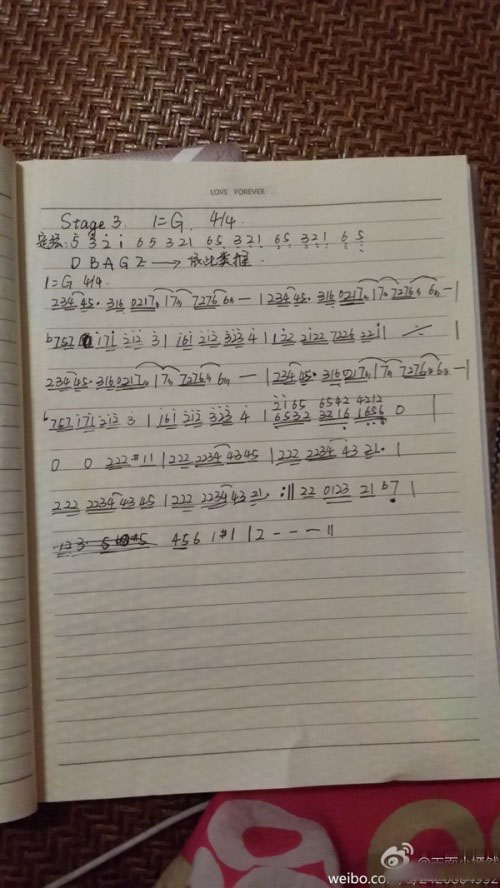 LOVE FOREVER
Stage 3. 1=G. 4/4.
5 3 2 i 65 321 65 321 65 321 65
D B A G E → 依此类推.
1=G 4/4.
234 45· 316 0217 17 7276 6 — | 234 45· 316 0217 17 7276 6 — |
b757 171 212 3 | 161 212 323 4 | 122 2122 7226 221 |
234 45· 316 0217 17 7276 6 — | 234 45· 316 0217 17 7276 6 — |
2165 6542 4212
b757 171 212 3 | 161 212 323 4 | 6532 3216 1656 0 |
0 0 222 #11 | 222 2234 4345 | 222 2234 43 21· |
222 2234 4345 | 222 2234 43 21· :|| 22 0123 21 b7 |
123 456 1 #1 | 2 - - - ||
weibo.co